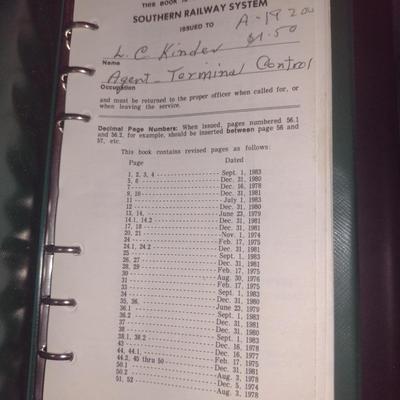 THIS BOOK IS
SOUTHERN RAILWAY SYSTEM
ISSUED TO
A-19200
$1.50
L. C. Kinder
Name
Agent - Terminal Control
Occupation
and must be returned to the proper officer when called for, or
when leaving the service.
Decimal Page Numbers: When issued, pages numbered 56.1
and 56.2, for example, should be inserted between page 56 and
57, etc.
This book contains revised pages as follows:
Page Dated
1, 2, 3, 4 Sept. 1, 1983
5, 6 Dec. 31, 1980
7 Dec. 16, 1978
9, 10 Dec. 31, 1981
11 July 1, 1983
12 Dec. 31, 1980
13, 14, June 23, 1979
14.1, 14.2 Dec. 31, 1981
17, 18 Dec. 31, 1981
20, 21 Nov. 1, 1974
24 Feb. 17, 1975
24.1, 24.2 Dec. 31, 1981
25 Sept. 1, 1983
26, 27 Dec. 31, 1981
28, 29 Feb. 17, 1975
30 Aug. 30, 1976
31 Feb. 17, 1975
33 Sept. 1, 1983
34 Feb. 17, 1975
35, 36, Dec. 31, 1980
36.1 June 23, 1979
36.2 Sept. 1, 1983
37 Dec. 31, 1981
38 Dec. 31, 1981
38.1, 38.2 Sept. 1, 1983
43 Dec. 16, 1977
44, 44.1, Dec. 16, 1978
44.2, 45 thru 50 Feb. 17, 1975
50.1 Dec. 31, 1981
50.2 Aug. 3, 1978
51, 52 Dec. 5, 1974
Aug. 3, 1978